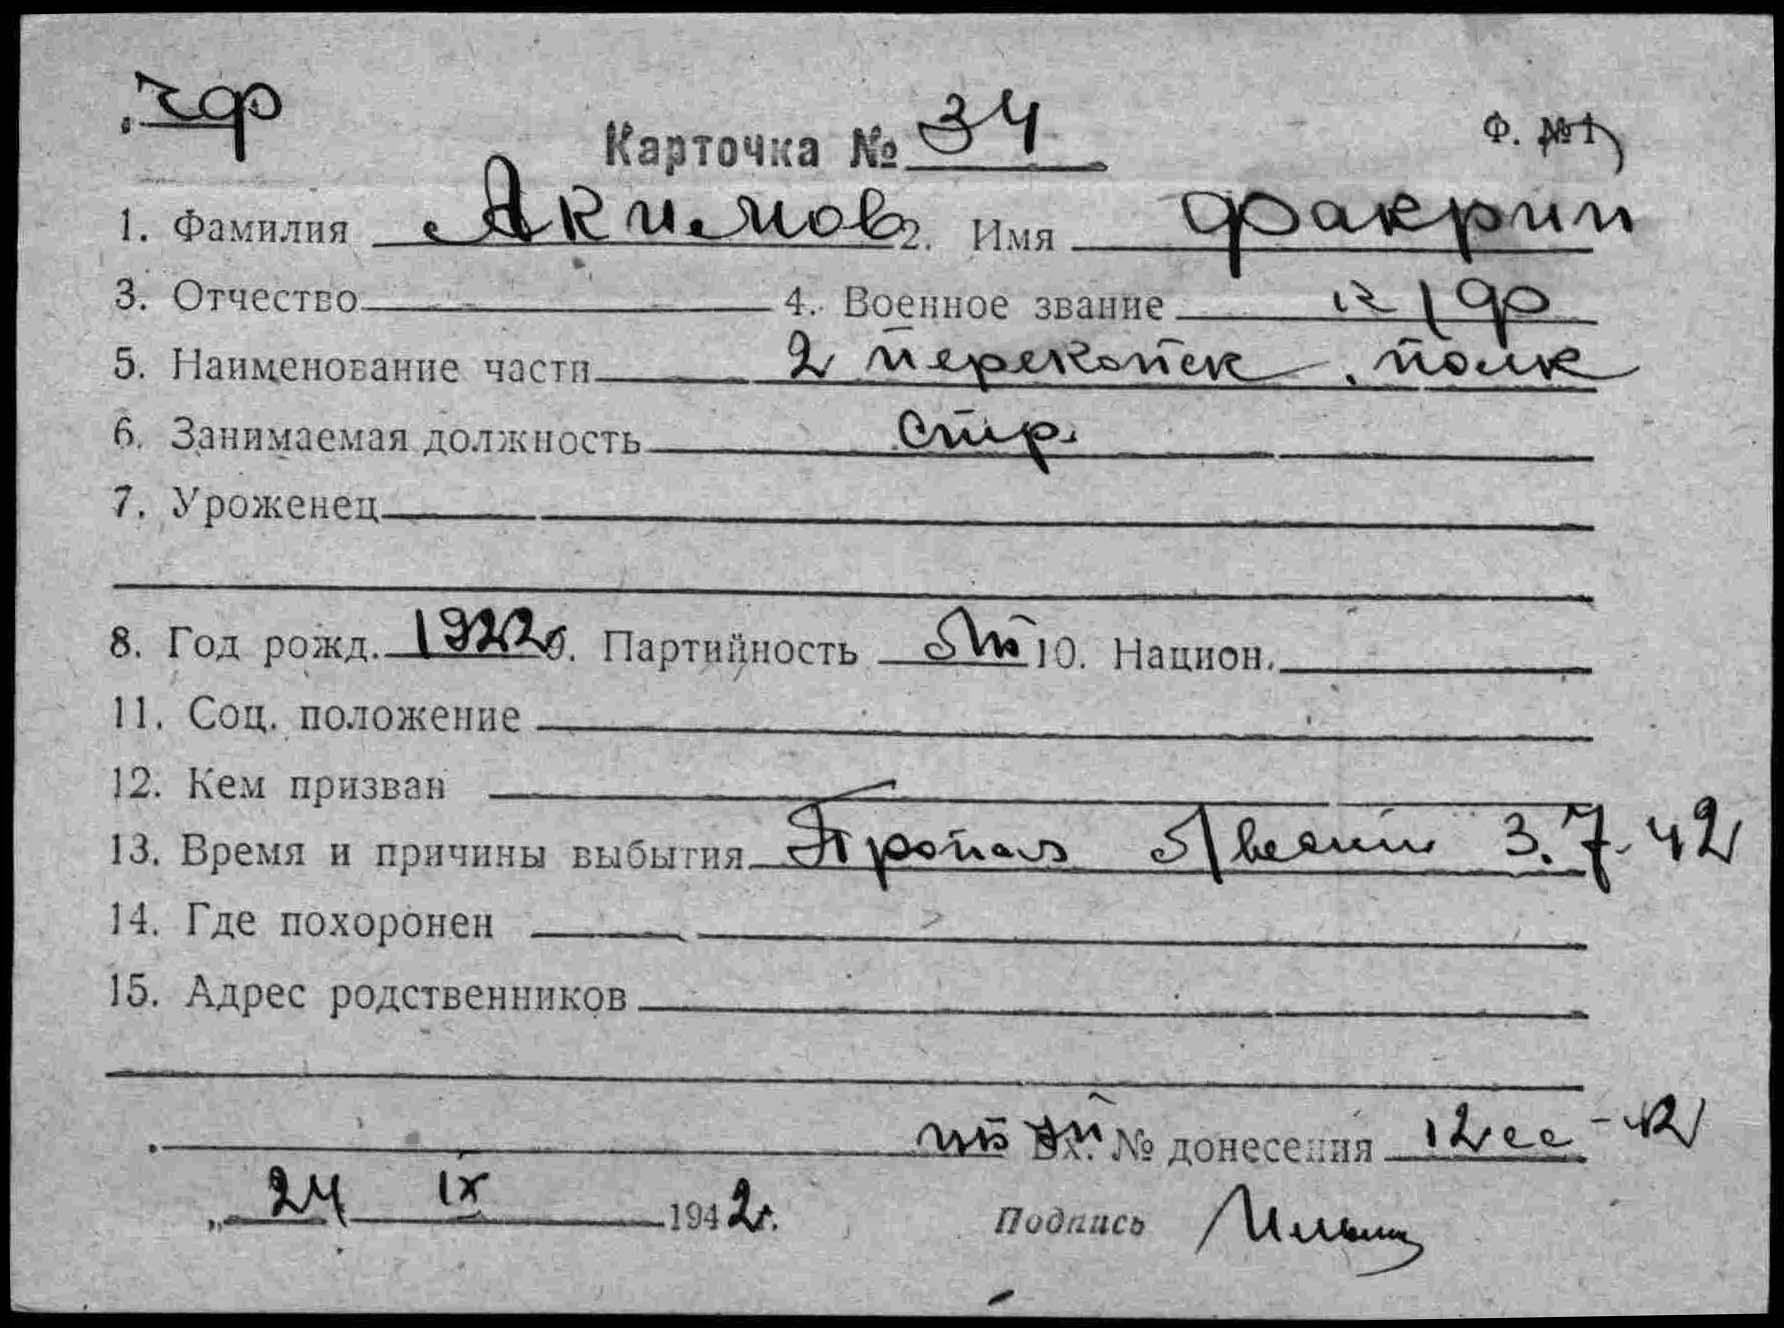 чф
Карточка № 34 Ф. №1
1. Фамилия Акимов 2. Имя Факрип
3. Отчество 4. Военное звание к/ф
5. Наименование части 2 перекопск. полк
6. Занимаемая должность стр.
7. Уроженец
8. Год рожд. 1922 9. Партийность 10. Национ.
11. Соц. положение
12. Кем призван
13. Время и причины выбытия Пропал 3.7.42
14. Где похоронен
15. Адрес родственников
Вх. № донесения 12сс-42
„ 24 IX 1942г.
Подпись